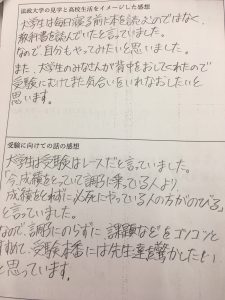 法政大学の見学と高校生活をイメージした感想
大学生は毎日寝る前に本を読ぶのではなく、
教科書を読んでいたと言っていました。
なので自分もやってみたいと思いました。
また、大学生のみなさんが背中をおしてくれたので
受験にむけまた気合いをいれなおしたいと
思います。
受験に向けての話の感想
大学生は受験はレースだと言っていました。
「今、成績をとっていて調子に乗っている人より、
成績をとれずに必死にやっている人の方がのびる」
と言っていました。
なので、調子にのらずに課題などをコツコツと
すすめて、受験本番には先生達を驚かしたい
と思っています。